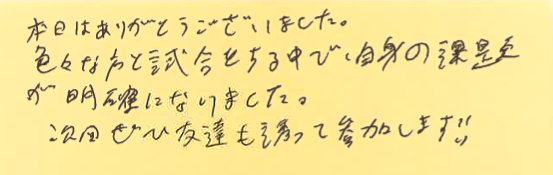 本日はありがとうございました。
色々な方と試合をする中で、自身の課題
が明確になりました。
次回ぜひ友達も誘って参加します!!